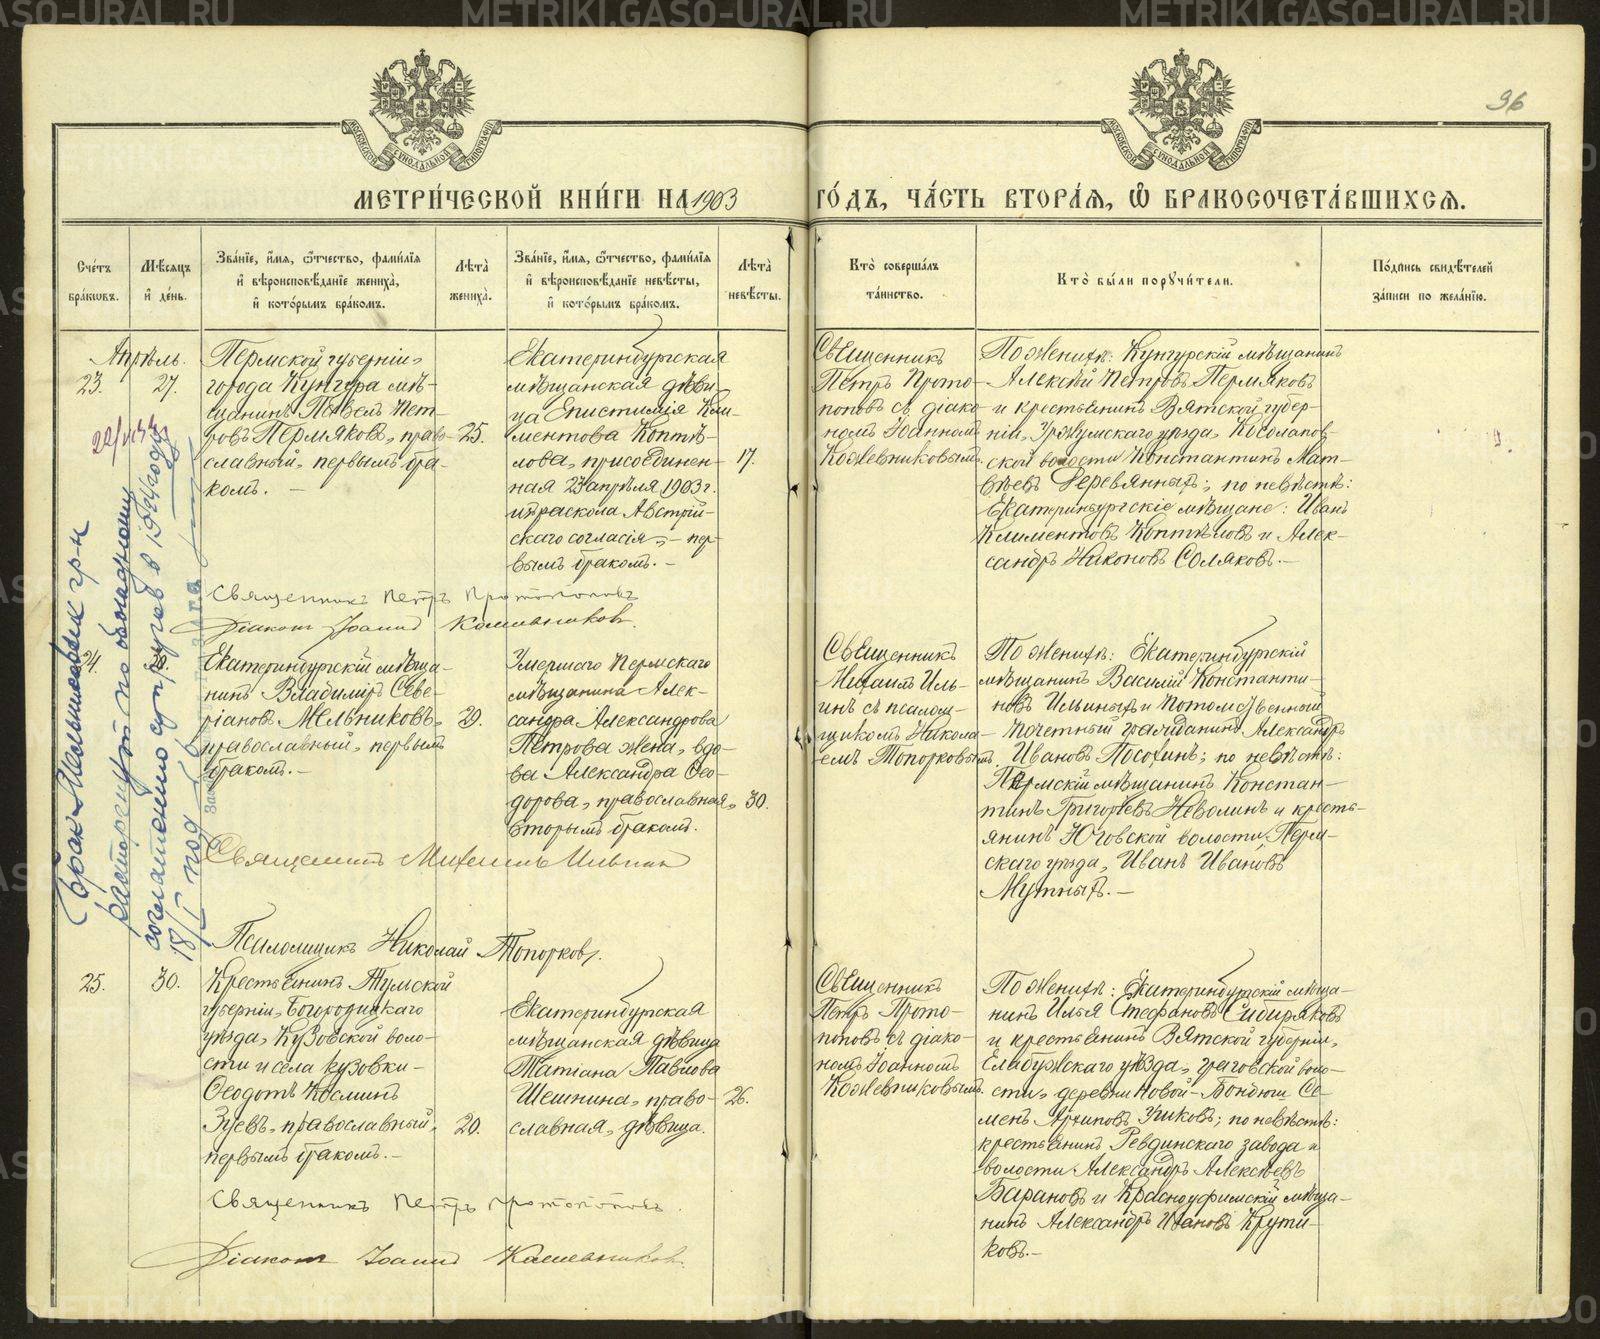 METRIKI.GASO-URAL.RU
96
МОСКОВСКОЙ СѴНОДАЛЬНОЙ ТИПОГРАФІИ
МОСКОВСКОЙ СѴНОДАЛЬНОЙ ТИПОГРАФІИ
МЕТРИ́ЧЕСКОЙ КНИ́ГИ НА 1903 ГО́ДЪ, ЧА́СТЬ ВТОРА́Я, Ѡ҆ БРАКОСОЧЕТА́ВШИХСЯ.
Сче́тъ
бра́ковъ.
Мѣ́сяцъ
и҆ де́нь.
Зва́нїе, и҆́мя, ѻ҆́тчество, фами́лїя
и҆ вѣроисповѣ́данїе жениха̀,
и҆ кото́рымъ бра́комъ.
Лѣта̀
жениха̀.
Зва́нїе, и҆́мя, ѻ҆́тчество, фами́лїя
и҆ вѣроисповѣ́данїе невѣ́сты,
и҆ кото́рымъ бра́комъ.
Лѣта̀
невѣ́сты.
Кто̀ соверша́лъ
та́инство.
Кто̀ бы́ли поручи́тели.
По́дпись свидѣ́телей
за́писи по жела́нїю.
Апрѣль.
23.
27.
Пермской губерніи,
города Кунгура мѣ-
щанинъ Павелъ Пет-
ровъ Пермяковъ, право-
славный, первымъ бра-
комъ.
25.
Екатеринбургская
мѣщанская дѣви-
ца Епистимія Кли-
ментова Коптѣ-
лова, присоединен-
ная 23 апрѣля 1903 г.
изъ раскола Австрій-
скаго согласія, - пер-
вымъ бракомъ.
17.
Священникъ
Петръ Прото-
поповъ съ діако-
номъ Іоанномъ
Кожевниковымъ.
По женихѣ: Кунгурскій мѣщанинъ
Алексѣй Петровъ Пермяковъ
и крестьянинъ Вятской губер-
ніи, Уржумскаго уѣзда, Косолапов-
ской волости Константинъ Мат-
вѣевъ Деревянныхъ; по невѣстѣ:
Екатеринбургскіе мѣщане: Иванъ
Климентовъ Коптѣловъ и Алек-
сандръ Никоновъ Соляковъ.
Священникъ Петръ Протопоповъ
Діаконъ Іоаннъ Кожевниковъ.
24.
Екатеринбургскій мѣща-
нинъ Владиміръ Севе-
ріановъ Мельниковъ,
православный, первымъ
бракомъ.
29.
Умершаго Пермскаго
мѣщанина Алек-
сандра Александрова
Петрова жена, вдо-
ва Александра Ѳео-
дорова, православная,
вторымъ бракомъ.
30.
Священникъ
Михаилъ Иль-
инъ съ псалом-
щикомъ Никола-
емъ Топорковымъ.
По женихѣ: Екатеринбургскій
мѣщанинъ Василій Константи-
новъ Ильиныхъ и Потомственный
почетный гражданинъ Александръ
Ивановъ Посохинъ; по невѣстѣ:
Пермскій мѣщанинъ Констан-
тинъ Григорьевъ Неволинъ и кресть-
янинъ Юговской волости, Перм-
скаго уѣзда, Иванъ Ивановъ
Мутныхъ.
Священникъ Михаилъ Ильинъ
Псаломщикъ Николай Топорковъ.
Брак Мельниковых гр-н
расторгнут по обоюдному
соглашению супругов в 1944 году
18/I под
25.
30.
Крестьянинъ Тульской
губерніи, Богородицкаго
уѣзда, Кузовской воло-
сти и села Кузовки
Ѳеодотъ Косминъ
Зуевъ, православный,
первымъ бракомъ.
20.
Екатеринбургская
мѣщанская дѣвица
Татіана Павлова
Шешнина, право-
славная, дѣвица.
26.
Священникъ
Петръ Прото-
поповъ съ діако-
номъ Іоанномъ
Кожевниковымъ.
По женихѣ: Екатеринбургскій мѣща-
нинъ Илья Стефановъ Сибиряковъ
и крестьянинъ Вятской губерніи,
Елабужскаго уѣзда, Граховской воло-
сти, деревни Новой-Бондюги Се-
менъ Архиповъ Чиковъ; по невѣстѣ:
крестьянинъ Ревдинскаго завода и
волости Александръ Алексѣевъ
Барановъ и Красноуфимскій мѣща-
нинъ Александръ Ивановъ Крути-
ковъ.
Священникъ Петръ Протопоповъ.
Діаконъ Іоаннъ Кожевниковъ.